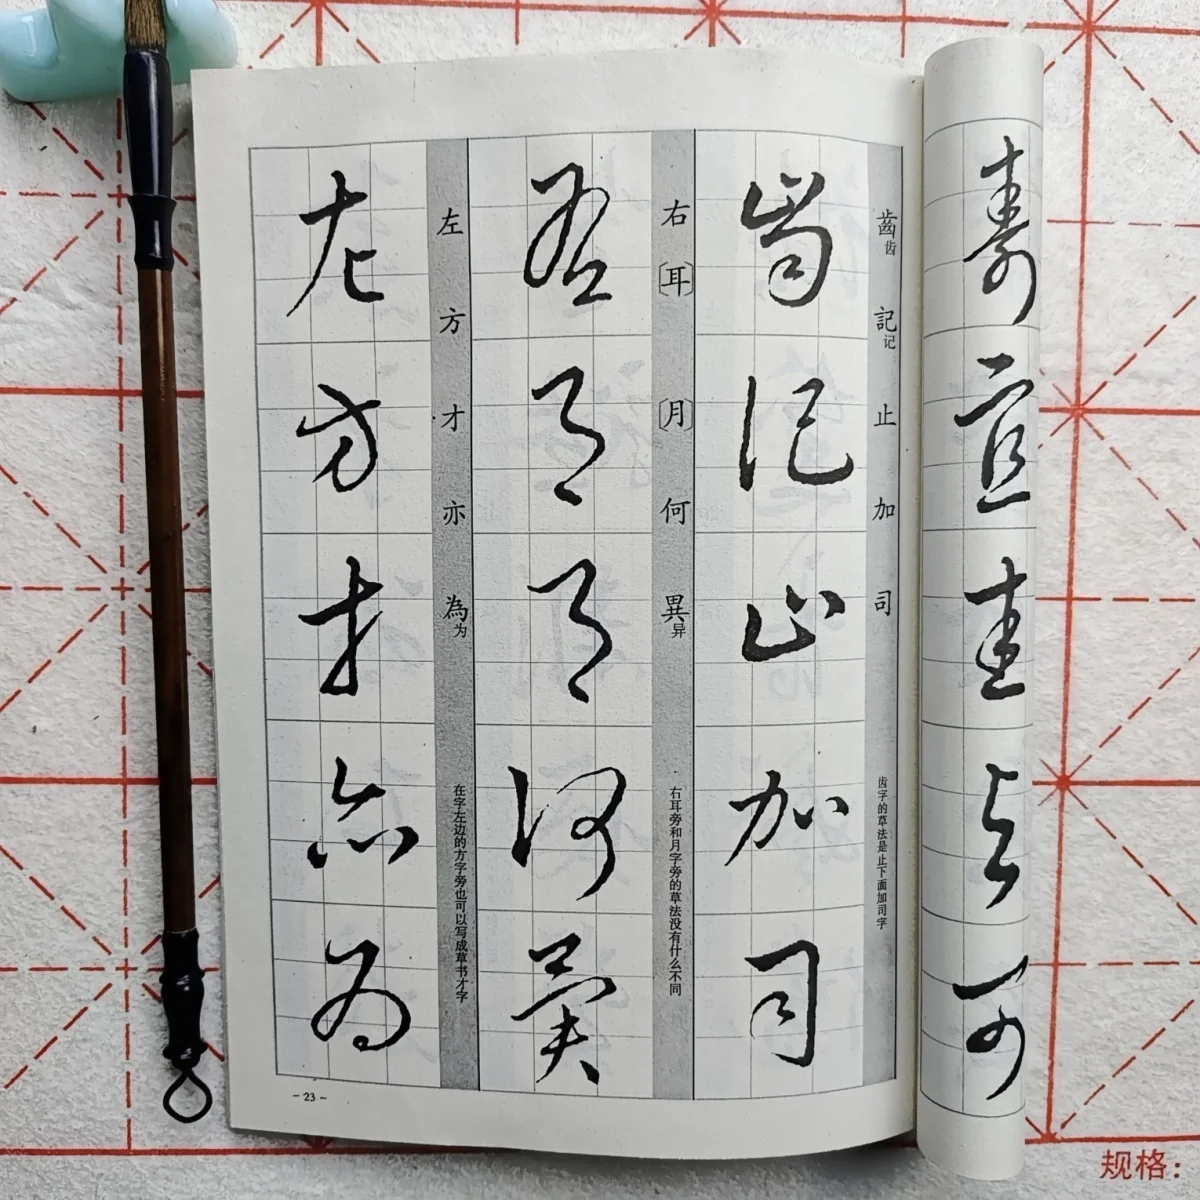 齒齿 記记 止 加 司
齿字的草法是止下面加司字
齒 記 止 加 司
右 〔耳〕 〔月〕 何 異异
右耳旁和月字旁的草法没有什么不同
右 耳 月 何 異
左 方 才 亦 為为
在字左边的方字旁也可以写成草书才字
左 方 才 亦 為
– 23 ~
规格：